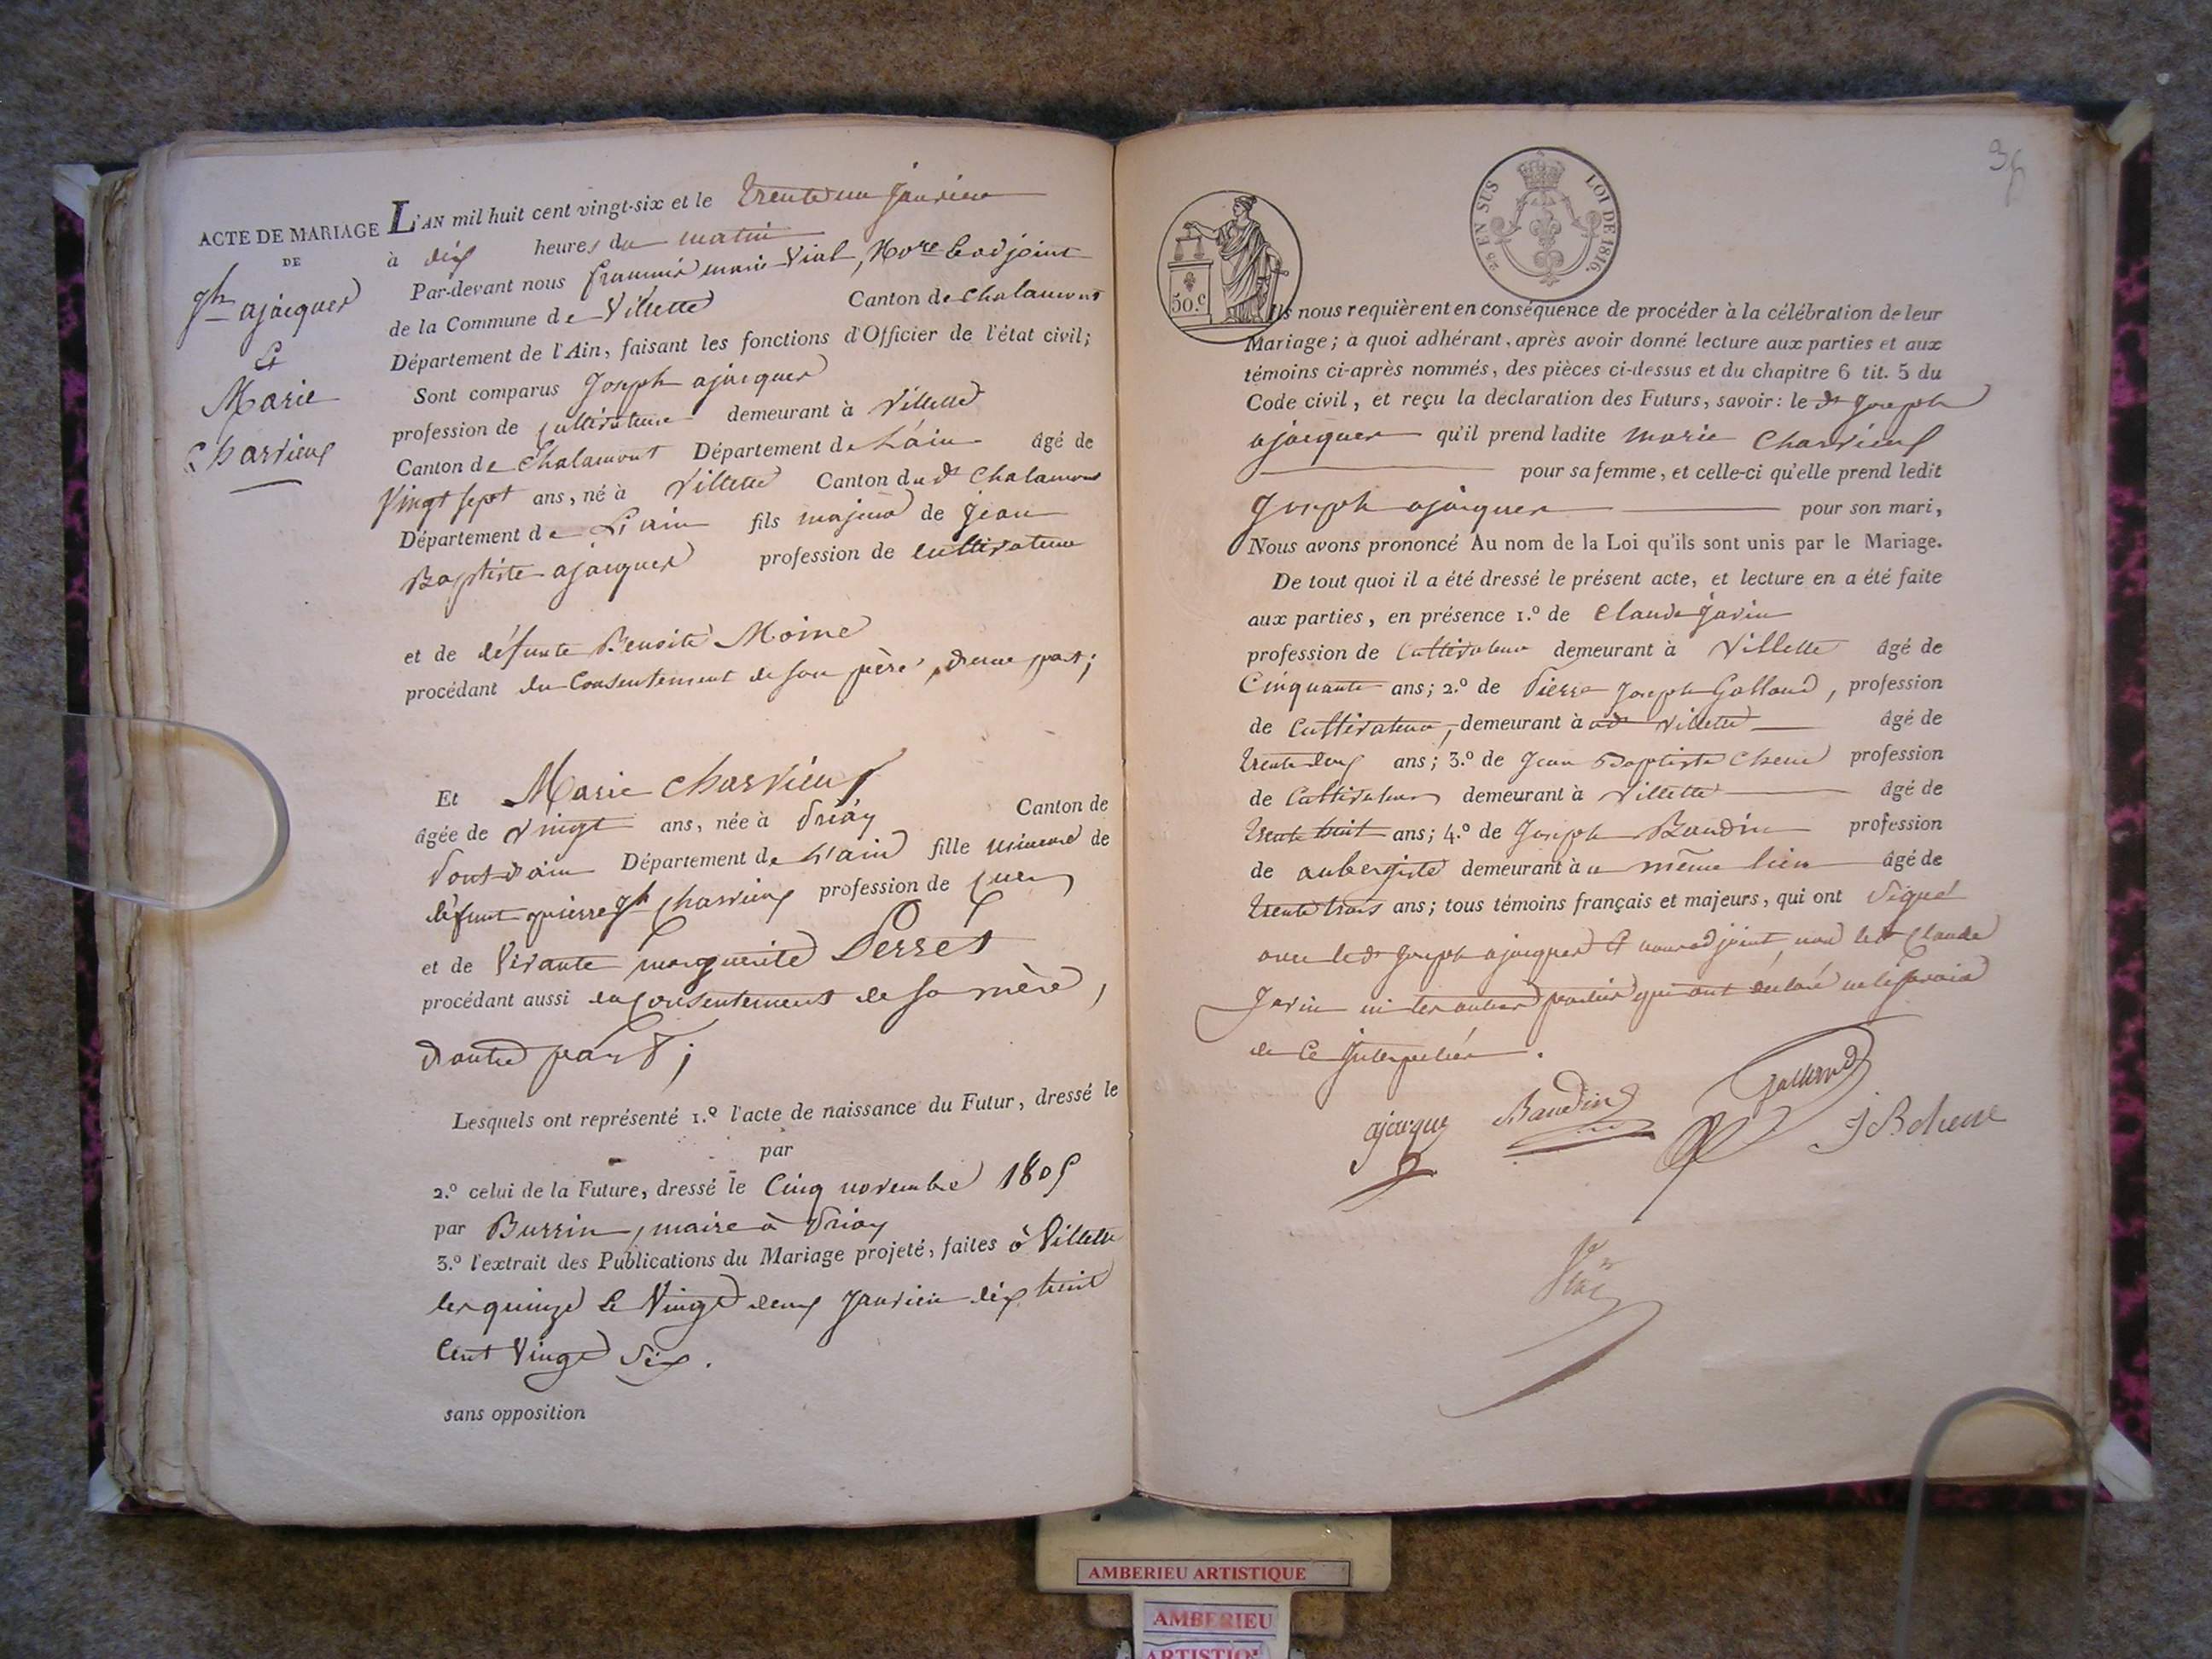 ACTE DE MARIAGE
DE
Jh ajacques
Et
Marie
Charvieux
L'AN mil huit cent vingt-six et le trente un janvier
à dix heures du matin
Par-devant nous françois marie Vial, No.re & adjoint
de la Commune de Villette Canton de Chalamont
Département de l'Ain, faisant les fonctions d'Officier de l'état civil;
Sont comparus Joseph ajacques
profession de cultivateur demeurant à Villette
Canton de Chalamont Département de L'ain âgé de
Vingt sept ans, né à Villette Canton du dt Chalamont
Département de L'ain fils majeur de Jean
Baptiste ajacques profession de cultivateur
et de défunte Benoite Moine
procédant du Consentement de son père, d'une part;
Et Marie Charvieux
âgée de vingt ans, née à Priay Canton de
Pont d'ain Département de L'ain fille mineure de
défunt pierre Jh Charvieux profession de
et de Vivante marguerite Perret
procédant aussi du Consentement de sa mère,
d'autre part;
Lesquels ont représenté 1.º l'acte de naissance du Futur, dressé le
par
2.º celui de la Future, dressé le Cinq novembre 1805
par Burrin, maire à Priay
3.º l'extrait des Publications du Mariage projeté, faites à Villette
les quinze & Vingt deux Janvier dix huit
Cent Vingt Six.
sans opposition
36
25 EN SUS
LOI DE 1816.
50.c
Ils nous requièrent en conséquence de procéder à la célébration de leur
Mariage; à quoi adhérant, après avoir donné lecture aux parties et aux
témoins ci-après nommés, des pièces ci-dessus et du chapitre 6 tit. 5 du
Code civil, et reçu la déclaration des Futurs, savoir: le dt Joseph
ajacques qu'il prend ladite marie Charvieux
pour sa femme, et celle-ci qu'elle prend ledit
Joseph ajacques pour son mari,
Nous avons prononcé Au nom de la Loi qu'ils sont unis par le Mariage.
De tout quoi il a été dressé le présent acte, et lecture en a été faite
aux parties, en présence 1.º de Claude Javin
profession de Cultivateur demeurant à Villette âgé de
Cinquante ans; 2.º de Pierre Joseph Galland, profession
de Cultivateur, demeurant à Villette âgé de
trente deux ans; 3.º de Jean Baptiste Chene profession
de Cultivateur demeurant à Villette âgé de
trente huit ans; 4.º de Joseph Baudin profession
de aubergiste demeurant à u même lieu âgé de
trente trois ans; tous témoins français et majeurs, qui ont signé
avec le dt Joseph ajacques & nous adjoint, non le dt Claude
Javin ni les autres parties qui ont déclaré ne le savoir
de ce Interpellés.
ajacque
Baudin
Galland
J B chene
Vial
AMBERIEU ARTISTIQUE
AMBERIEU
ARTISTIQUE